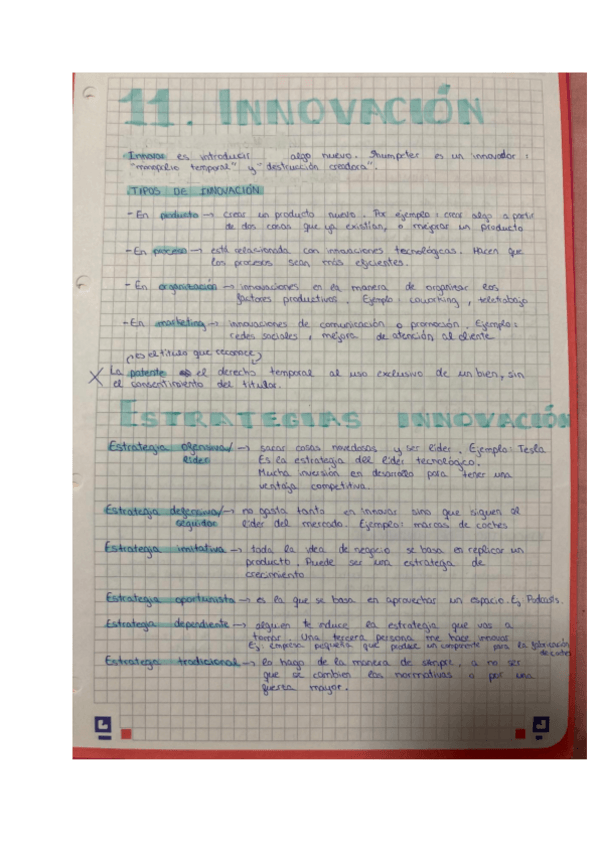 11. INNOVACIÓN
Innovar es introducir algo nuevo. Shumpeter es un innovador:
"monopolio temporal" y "destrucción creadora".
TIPOS DE INNOVACIÓN
- En producto → crear un producto nuevo. Por ejemplo: crear algo a partir
de dos cosas que ya existían, o mejorar un producto
- En proceso → está relacionada con innovaciones tecnológicas. Hacen que
los procesos sean más eficientes.
- En organización → innovaciones en la manera de organizar los
factores productivos. Ejemplo: coworking, teletrabajo
- En marketing → innovaciones de comunicación o promoción. Ejemplo:
redes sociales, mejora de atención al cliente
(es el título que reconoce)
X La patente es el derecho temporal al uso exclusivo de un bien, sin
el consentimiento del titular.
ESTRATEGIAS INNOVACIÓN
Estrategia ofensiva/ → sacar cosas novedosas y ser líder. Ejemplo: Tesla
líder Es la estrategia del líder tecnológico.
Mucha inversión en desarrollo para tener una
ventaja competitiva.
Estrategia defensiva/ → no gasta tanto en innovar sino que siguen al
seguidor líder del mercado. Ejemplo: marcas de coches
Estrategia imitativa → toda la idea de negocio se basa en replicar un
producto. Puede ser una estratega de
crecimiento
Estrategia oportunista → es la que se basa en aprovechar un espacio. Ej Podcasts.
Estrategia dependiente → alguien te induce la estrategia que vas a
tomar. Una tercera persona me hace innovar
Ej, empresa pequeña que produce un componente para la fabricación
de coches
Estratega tradicional → lo hago de la manera de siempre, a no ser
que se cambien las normativas o por una
fuerza mayor.